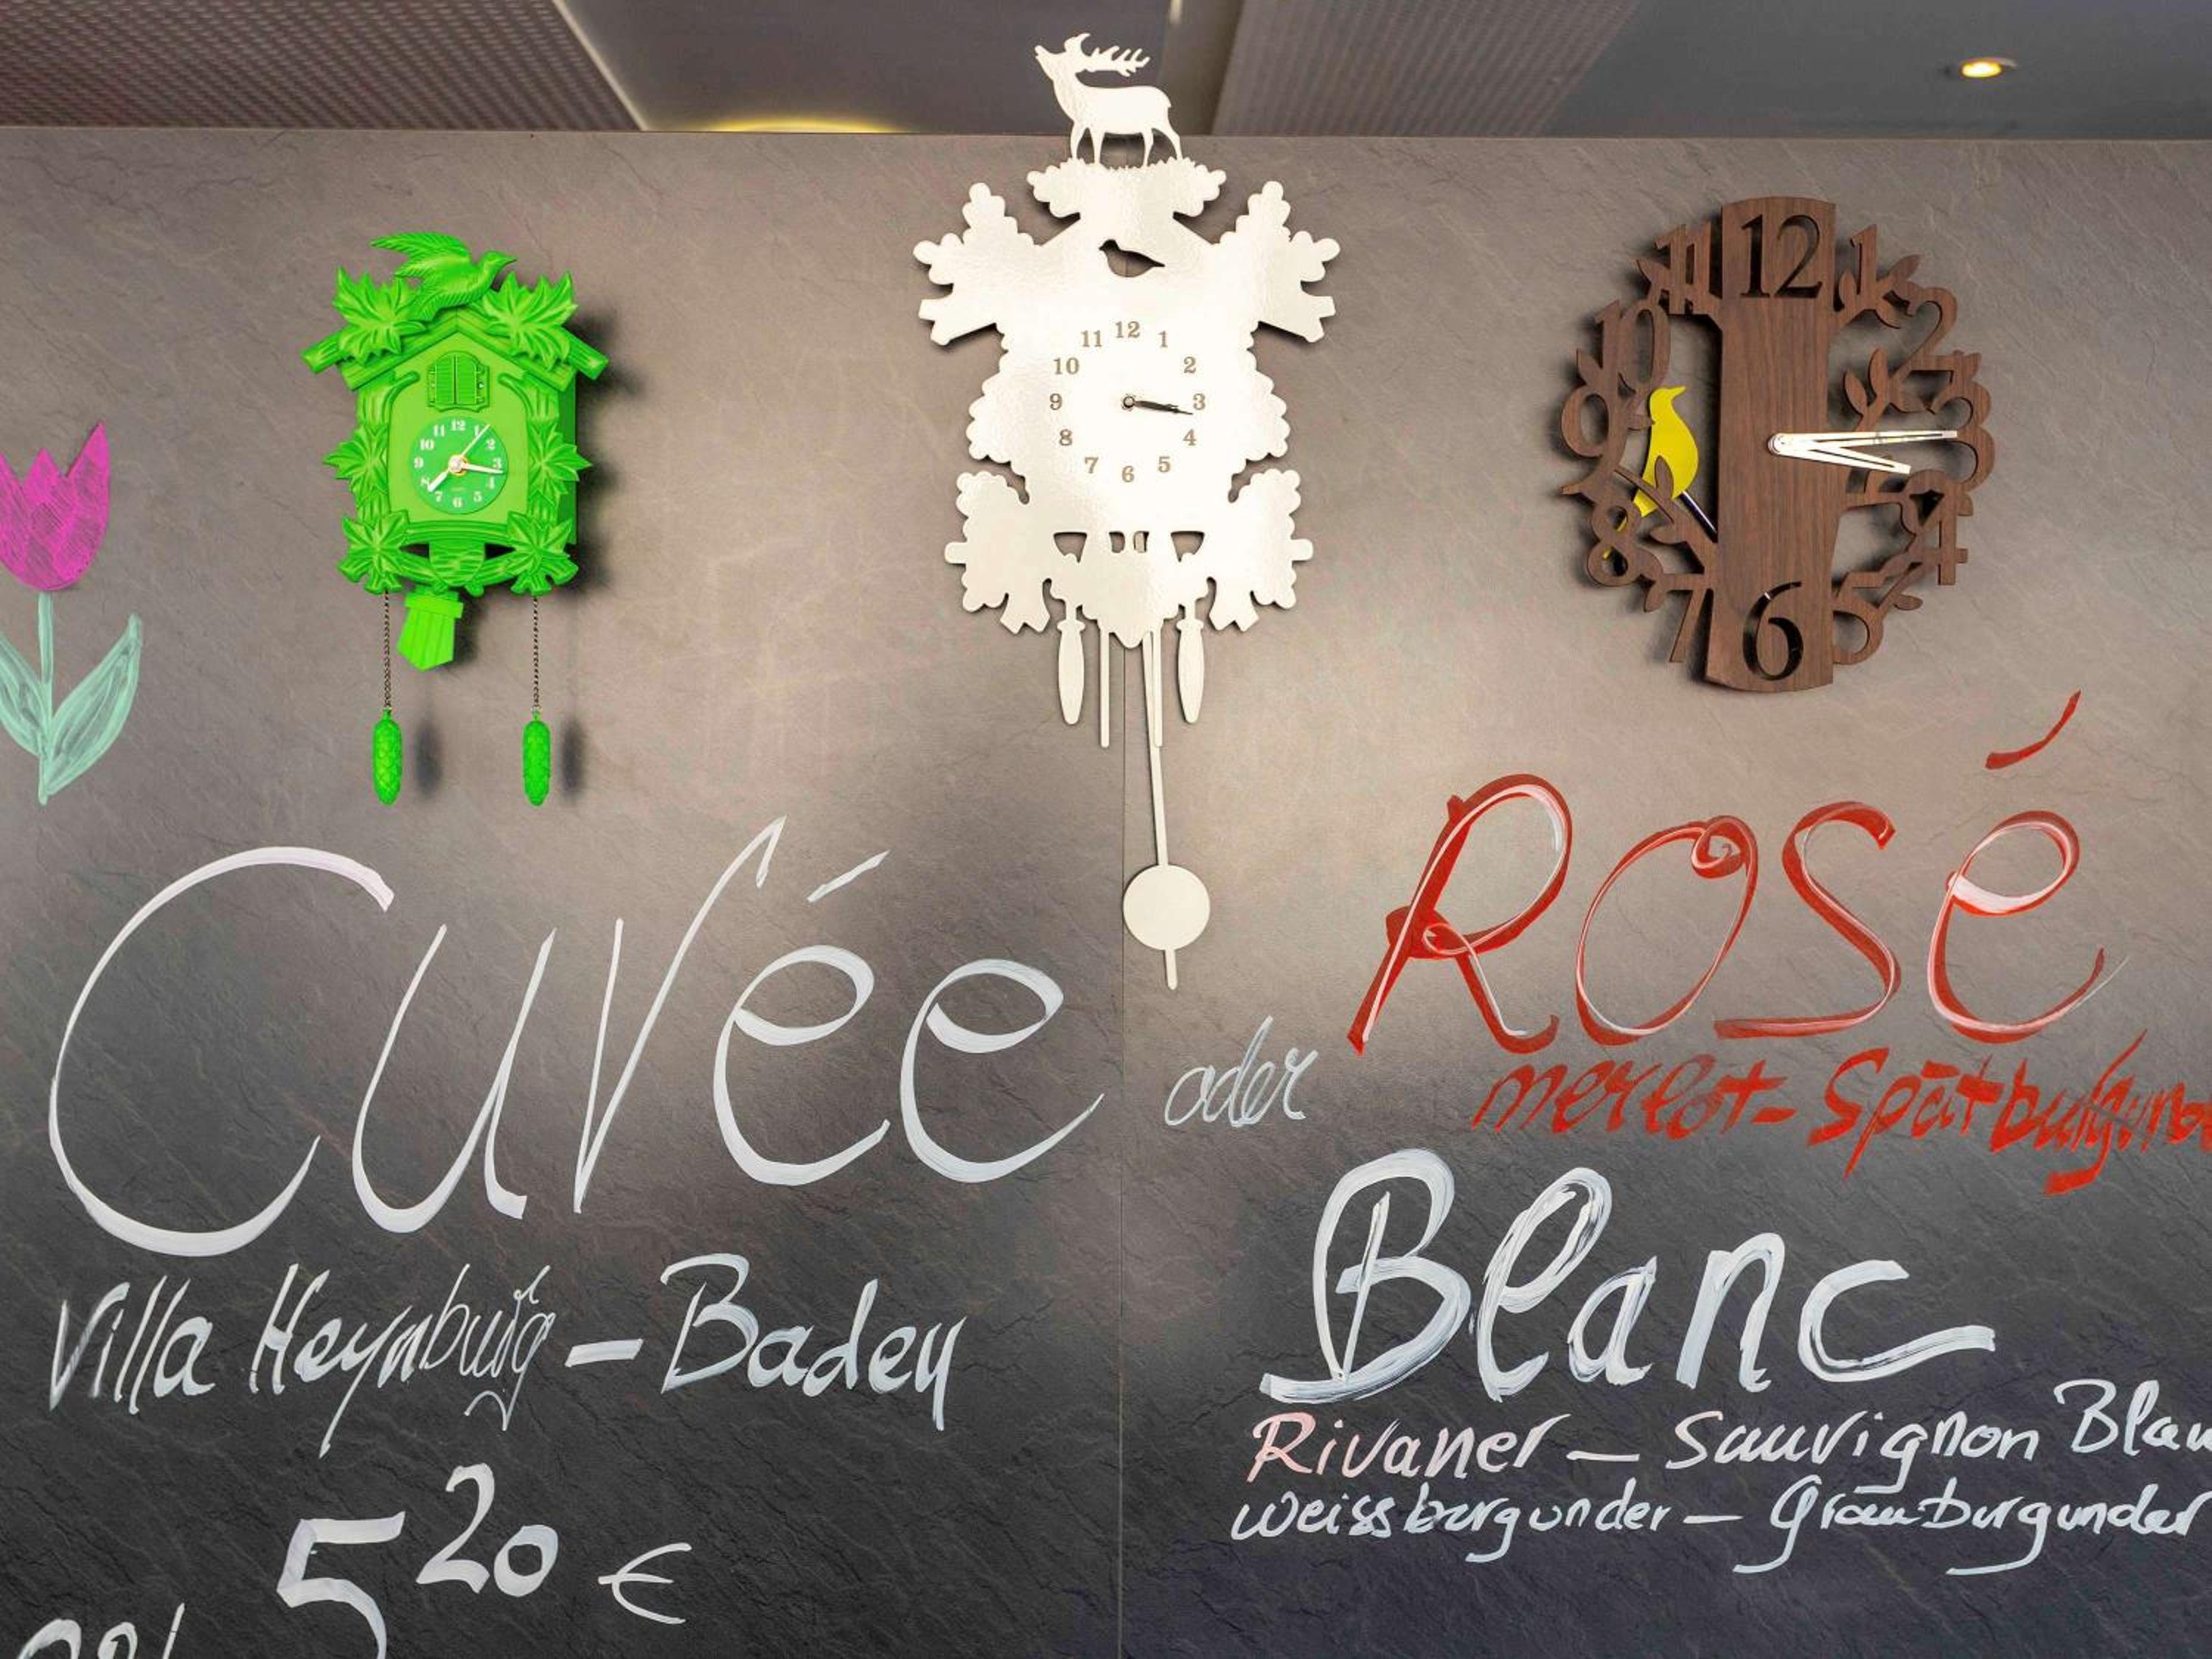 12
11 1
10 2
9 3
8 4
7 5
6
12
11 1
10 2
9 3
8 4
7 5
6
12
11 1
10 2
9 3
8 4
7 5
6
Cuvée
Villa Heynburg – Baden
5 20 €
oder
Rosé
merlot – Spätburgund
Blanc
Rivaner – Sauvignon Blan
Weissburgunder – Grauburgunder